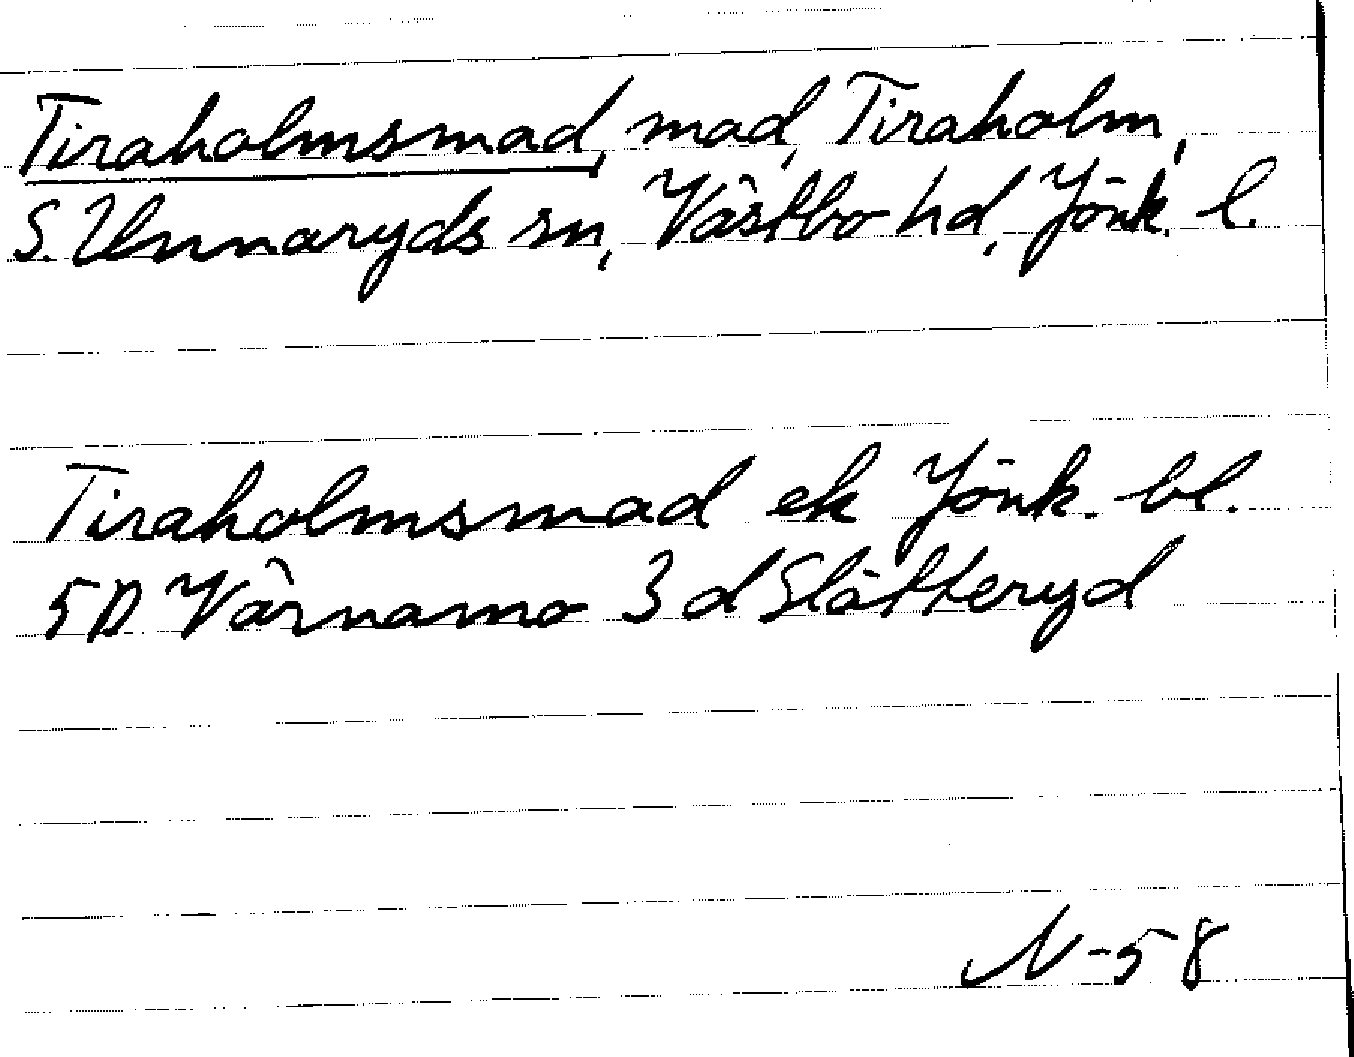 Tiraholmsmad, mad, Tiraholm,
S. Unnaryds sn, Västbo hd, Jönk. l.
Tiraholmsmad ek Jönk. bl.
5D Värnamo 3d Slätteryd
N-58